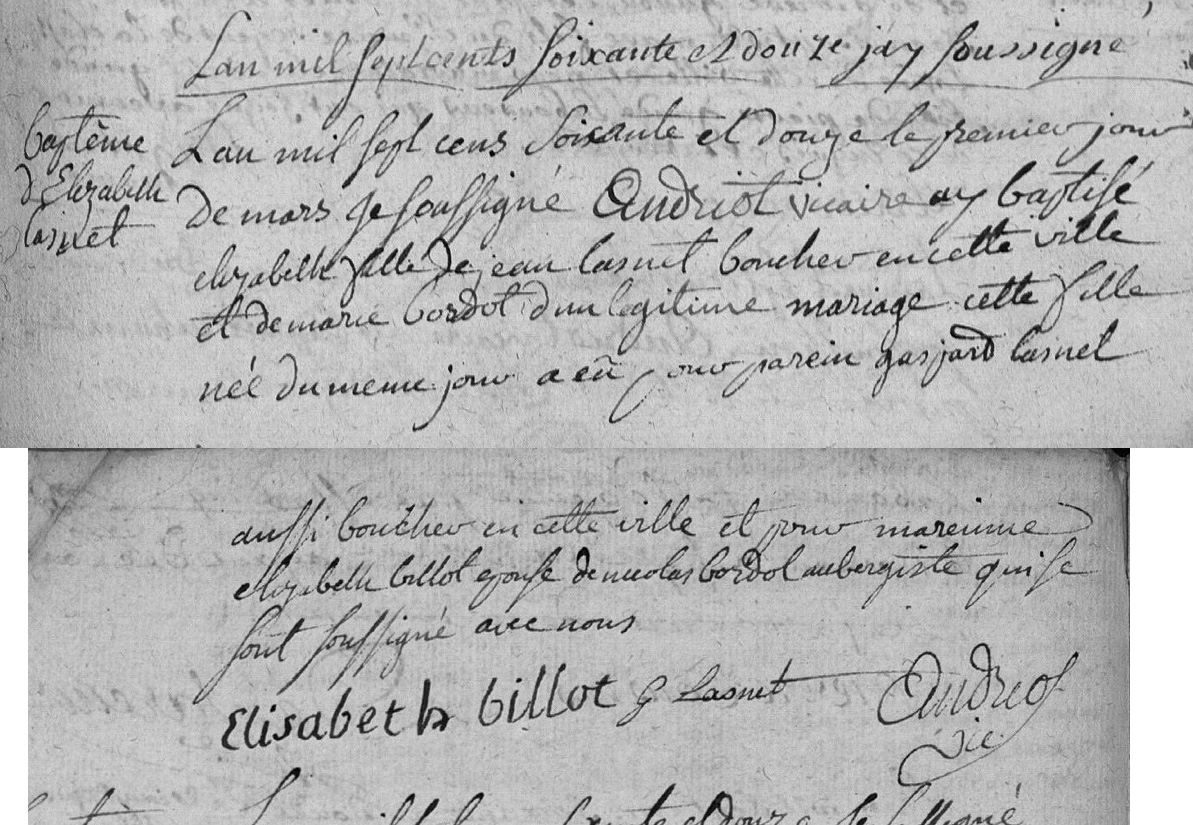 Lan mil sept cents soixante et douze jay soussigne
baptême
d'Elizabeth
lasnet
Lan mil sept cens soixante et douze le premier jour
de mars je soussigné Andriot vicaire ay baptisé
elizabeth fille de jean lasnet boucher en cette ville
et de marie bordot d'un legitime mariage cette fille
née du meme jour a eû pour parein gaspard lasnet
aussi boucher en cette ville et pour mareinne
elizabeth billot epouse de nicolas bordot aubergiste qui se
sont soussigné avec nous
Elisabeth billot G Lasnet Andriot
vic.
soixante et douze je soussigné